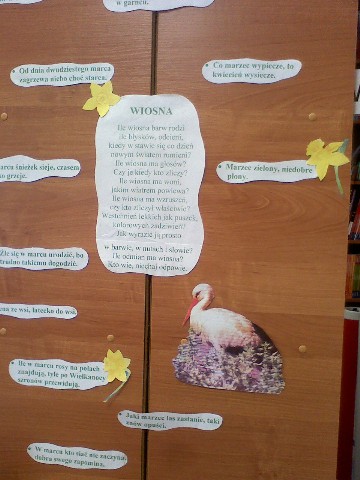 w garncu.
Od dnia dwudziestego marca
zagrzewa niebo choć starca.
Co marzec wypiecze, to
kwiecień wysiecze.
WIOSNA
Ile wiosna barw rodzi
ile błysków, odcieni,
kiedy w stawie się co dzień
nowym światem rumieni?
Ile wiosna ma głosów?
Czy ją kiedy kto zliczy?
Ile wiosna ma woni,
jakim wiatrem powiewa?
Ile wiosna ma wzruszeń,
czy kto zliczył właściwie?
Westchnień lekkich jak puszek,
kolorowych zadziwień?
Jak wyrazić ją prosto
w barwie, w nutach i słowie?
Ile odmian ma wiosna?
Kto wie, niechaj odpowie.
śnieżek sieje, czasem
grzeje.
Marzec zielony, niedobre
plony.
się w marcu urodzić, bo
trudno takiemu dogodzić.
ze wsi, latecko do wsi.
Ile w marcu rosy na polach
znajdują, tyle po Wielkanocy
szronów przewidują.
Jaki marzec las zastanie, taki
znów opuści.
W marcu kto siać nie zaczyna,
dobra swego zapomina.